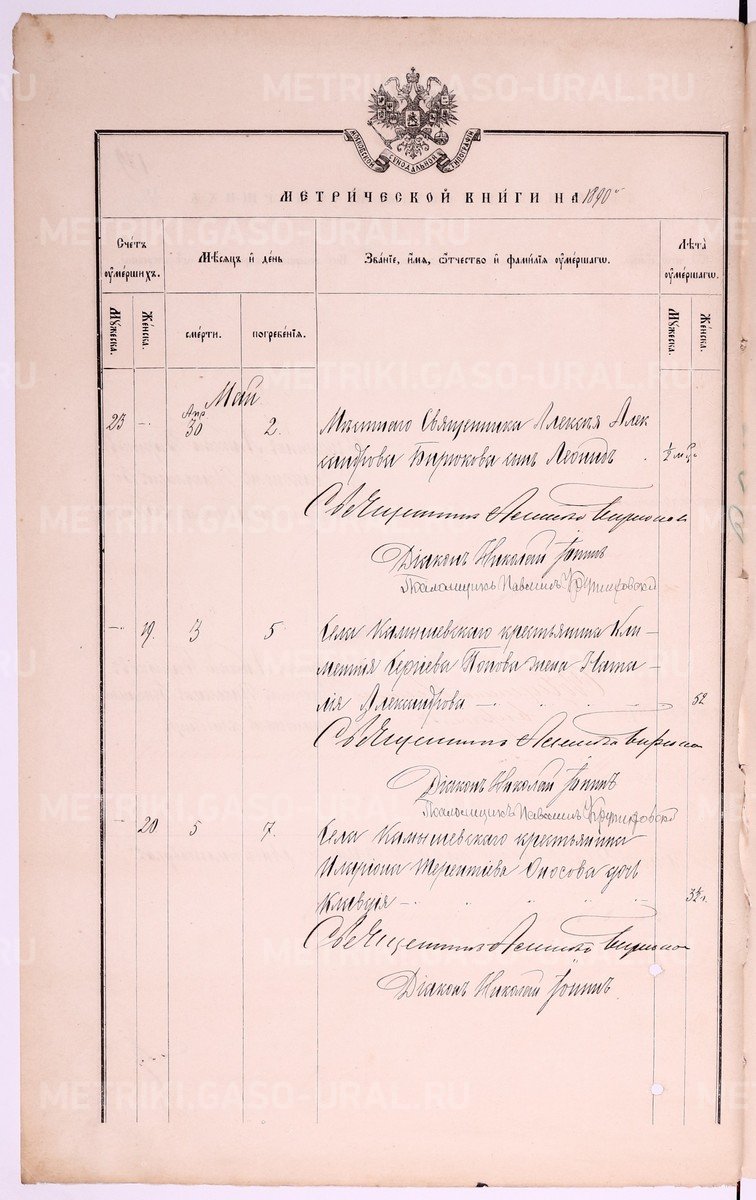 METRIKI.GASO-URAL.RU
МОСКОВСКОЙ СѴНОДАЛЬНОЙ ТИПОГРАФІИ
МЕТРИ́ЧЕСКОЙ КНИ́ГИ НА 1890й
Сче́тъ ᲂуме́ршихъ.
Мѣ́сяцъ и҆ де́нь
Зва́нїе, и҆́мя, ѻ҆́тчество и҆ фами́лїя ᲂуме́ршагѡ.
Лѣ́та ᲂуме́ршагѡ.
Мꙋ́жеска.
Же́нска.
сме́рти.
погребе́нїя.
Мꙋ́жеска.
Же́нска.
Май
23 - Апр 30 2. Мѣстнаго Священника Алексѣя Алек
сандрова Бирюкова сынъ Леонидъ . ½ м
Священникъ Алексѣй Бирюков
Діаконъ Николай
Псаломщикъ Павелинъ
- 19. 3 5 Села Камышевскаго крестьянина Кли-
ментія Сергѣева Попова жена Ната-
лія Александрова - 52
Священникъ Алексѣй Бирюков
Діаконъ Николай
Псаломщикъ Павелинъ
- 20 5 7. Села Камышевскаго крестьянина
Иларіона Терентіева Опосова дочь
Клавдія - 3
Священникъ Алексѣй Бирюков
Діаконъ Николай